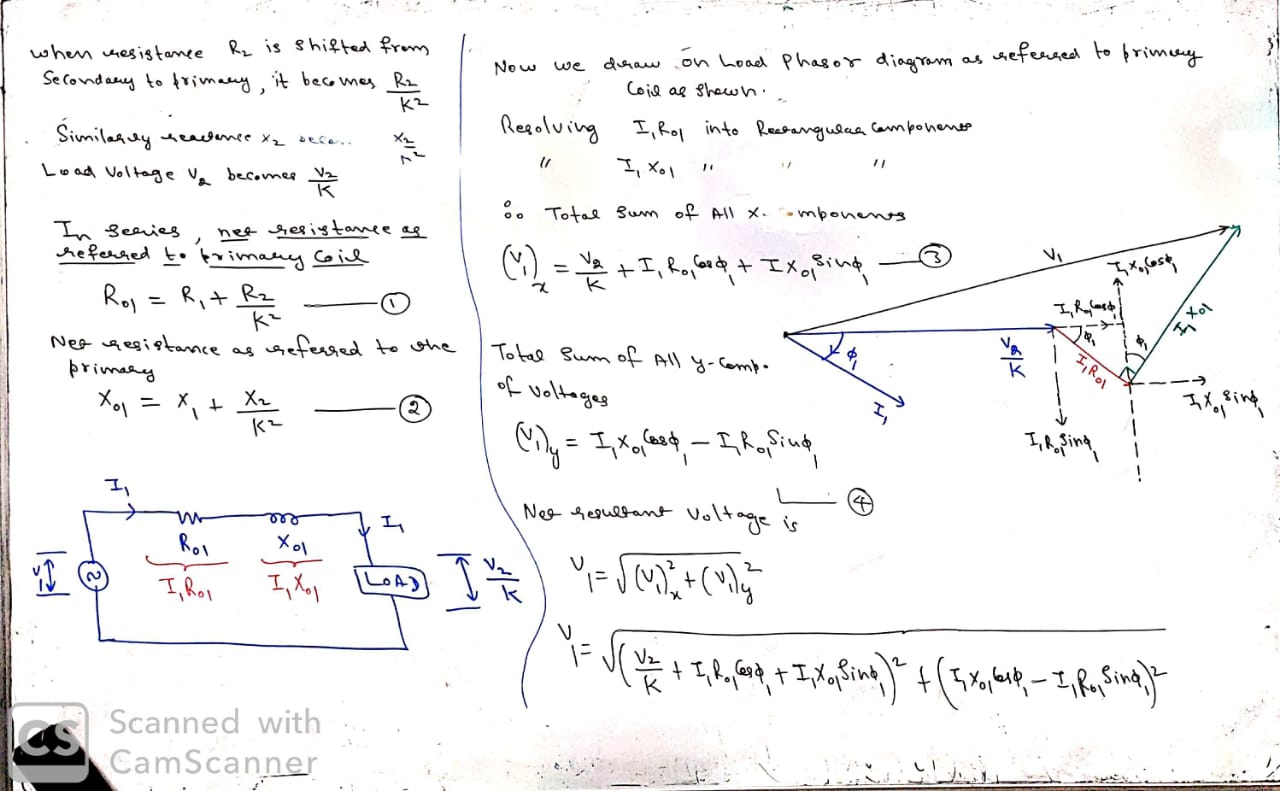 when resistance R₂ is shifted from
Secondary to primary, it becomes R₂/K²
Similarly reactance X₂ X₂
Load Voltage V₂ becomes V₂/K
In Series, net resistance as
referred to primary coil
R₀₁ = R₁ + R₂/K² — ①
Net resistance as referred to the
primary
X₀₁ = X₁ + X₂/K² — ②
I₁
R₀₁ X₀₁ I₁
V₁ I₁R₀₁ I₁X₀₁ LOAD V₂/K
Now we draw on Load Phasor diagram as referred to primary
Coil as shown.
Resolving I₁R₀₁ into Rectangular Components
" I₁X₀₁ " " "
∴ Total Sum of All X-
(V₁)x = V₂/K + I₁R₀₁Cosφ₁ + IX₀₁Sinφ₁ — ③
Total Sum of All y-Comp.
of voltages
(V₁)y = I₁X₀₁Cosφ₁ – I₁R₀₁Sinφ₁
④
Net resultant voltage is
V₁ = √((V₁)x² + (V₁)y²)
V₁ = √((V₂/K + I₁R₀₁Cosφ₁ + I₁X₀₁Sinφ₁)² + (I₁X₀₁Cosφ₁ – I₁R₀₁Sinφ₁)²)
V₁
I₁X₀₁Cosφ₁
I₁R₀₁Cosφ₁
I₁X₀₁
φ₁ φ₁
φ₁
V₂/K
I₁R₀₁
I₁
I₁X₀₁Sinφ₁
I₁R₀₁Sinφ₁
CS Scanned with
CamScanner